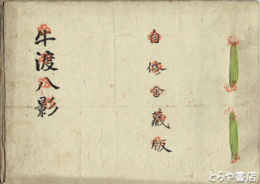 自修舎蔵版
牛渡八影
とらや書店